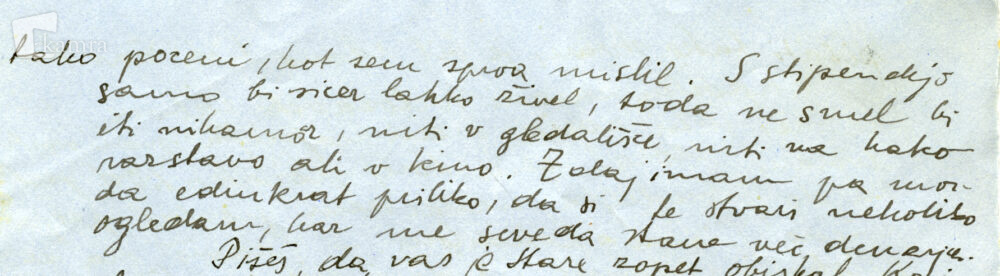 kamra
tako poceni, kot sem sprva mislil. S stipendijo
samo bi sicer lahko živel, toda ne smel bi
iti nikamor, niti v gledališče, niti na kako
razstavo ali v kino. Zdaj imam pa mor-
da edinkrat priliko, da si te stvari nekoliko
ogledam, kar me seveda stane več denarja.
Pišeš, da vas je Stare zopet obiskal